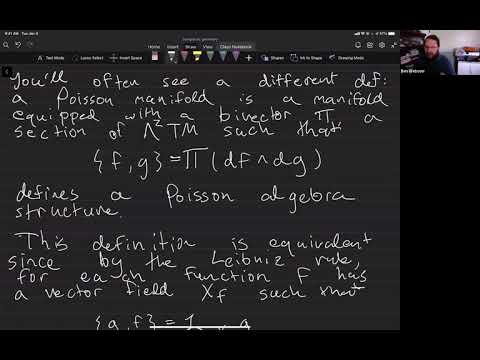 9:41 AM Tue Jan 5
Symplectic geometry
Class Notebook
Text Mode
Lasso Select
Insert Space
Shapes
Ink to Shape
Drawing Mode
Ben Webster
You'll often see a different def:
a Poisson manifold is a manifold
equipped with a bivector Π, a
section of Λ²TM such that
{f,g}=Π(df∧dg)
defines a Poisson algebra
structure.
This definition is equivalent
since by the Leibniz rule,
for each function f has
a vector field X_f such that